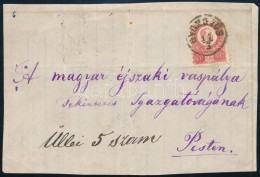 A magyar éjszaki vaspálya
tekintetes Igazgatóságának
Üllei 5 szam
Pesten.